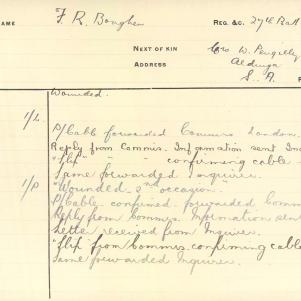 NAME F. R. REG. &C. 27th Batt
NEXT OF KIN Mrs W. Pengilly
ADDRESS Aldinga
S. A.
Wounded.
1/L P/Cable forwarded Commrs London.
Reply from Commrs. Information sent
"flip" " " confirming cable
Same forwarded Inquirer.
1/P "Wounded 2nd occasion.
P/Cable confirmed forwarded Comm
Reply from Commrs. Information sent
Letter received from Inquirer.
"flip" from Commrs. confirming cabl
Same forwarded Inquirer.